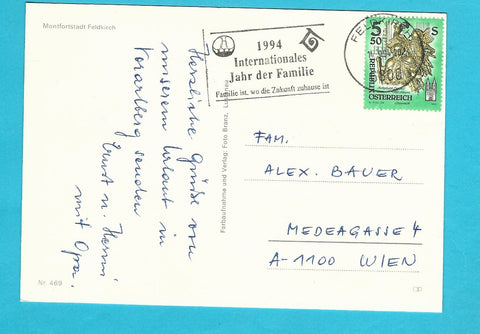 Montfortstadt Feldkirch
Herzliche Grüße von
unserem Urlaub in
Vorarlberg senden
Ernst u. Hermi
mit Opa.
Nr. 469
Farbaufnahme und Verlag: Foto Branz,
1994
Internationales
Jahr der Familie
Familie ist, wo die Zukunft zuhause ist
5 50
S
REPUBLIK
ÖSTERREICH
FAM.
ALEX. BAUER
MEDEAGASSE 4
A-1100 WIEN